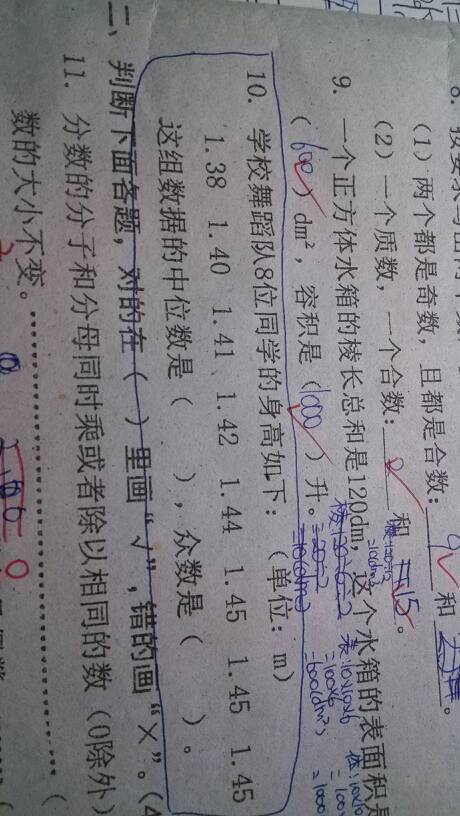 (1) 两个都是奇数，且都是合数：9 和
(2) 一个质数，一个合数：2 和 15。
9. 一个正方体水箱的棱长总和是120dm，这个水箱的表面积是
( 600 ) dm²，容积是 ( 1000 ) 升。
10. 学校舞蹈队8位同学的身高如下：（单位：m）
1.38 1.40 1.41 1.42 1.44 1.45 1.45 1.45
这组数据的中位数是（ ），众数是（ ）。
二、判断下面各题，对的在（ ）里画“√”，错的画“×”。(4
11. 分数的分子和分母同时乘或者除以相同的数（0除外）
数的大小不变。………………………………（